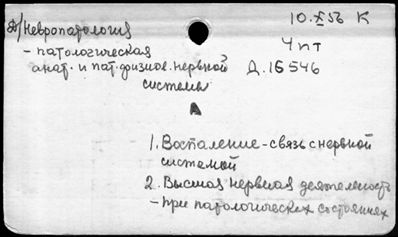 Д/Невропатология
10.X56 К
- патологическая
4 пт
анат. и пат. физиол. нервной
Д.16546
системы
А
1. Воспаление - связь с нервной
системой
2. Высшая нервная деятельность
- при патологических состояниях